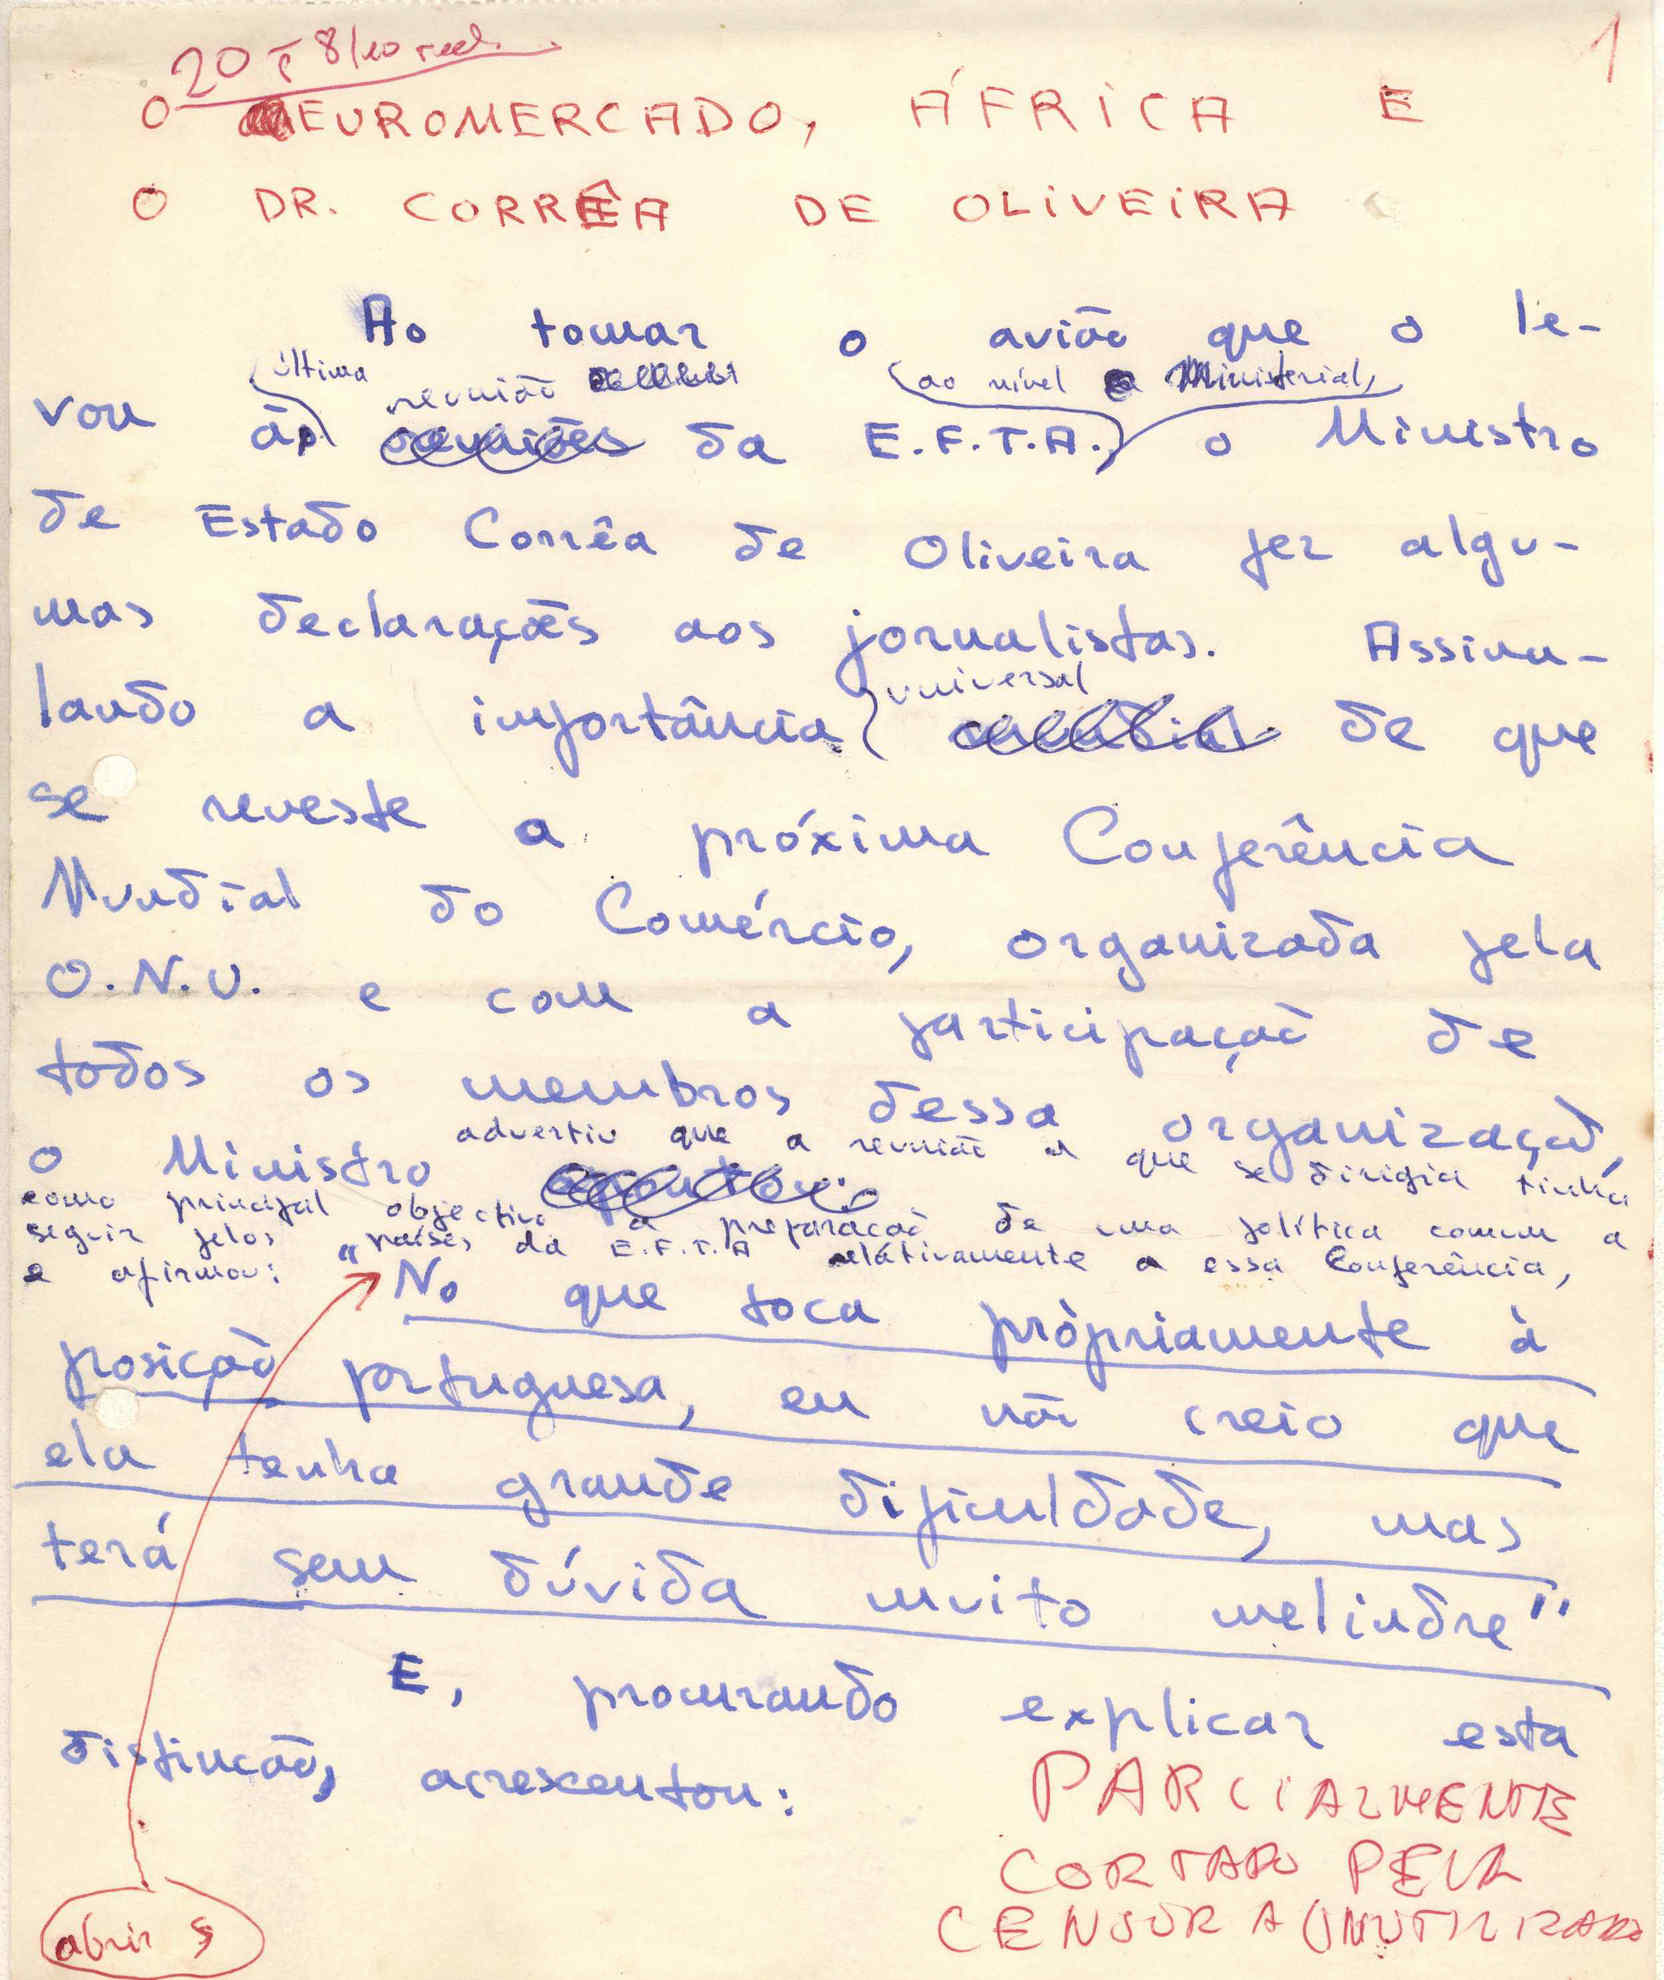 20 8/10
1
O EUROMERCADO, ÁFRICA E
O DR. CORRÊA DE OLIVEIRA
Ao tomar o avião que o le-
última reunião ao nível Ministerial,
vou à da E.F.T.A., o Ministro
de Estado Corrêa de Oliveira fez algu-
mas declarações aos jornalistas. Assina-
universal
lando a importância de que
se reveste a próxima Conferência
Mundial do Comércio, organizada pela
O.N.U. e com a participação de
todos os membros dessa organização,
o Ministro advertiu que a reunião a que se dirigia tinha
como principal objectivo a preparação de uma política comum a
seguir pelos países da E.F.T.A relativamente a essa Conferência,
e afirmou:
"No que toca pròpriamente à
posição portuguesa, eu não creio que
ela tenha grande dificuldade, mas
terá sem dúvida muito melindre"
E, procurando explicar esta
distinção, acrescentou:
PARCIALMENTE
CORTADO PELA
CENSURA (INUTILIZADO
abrir §